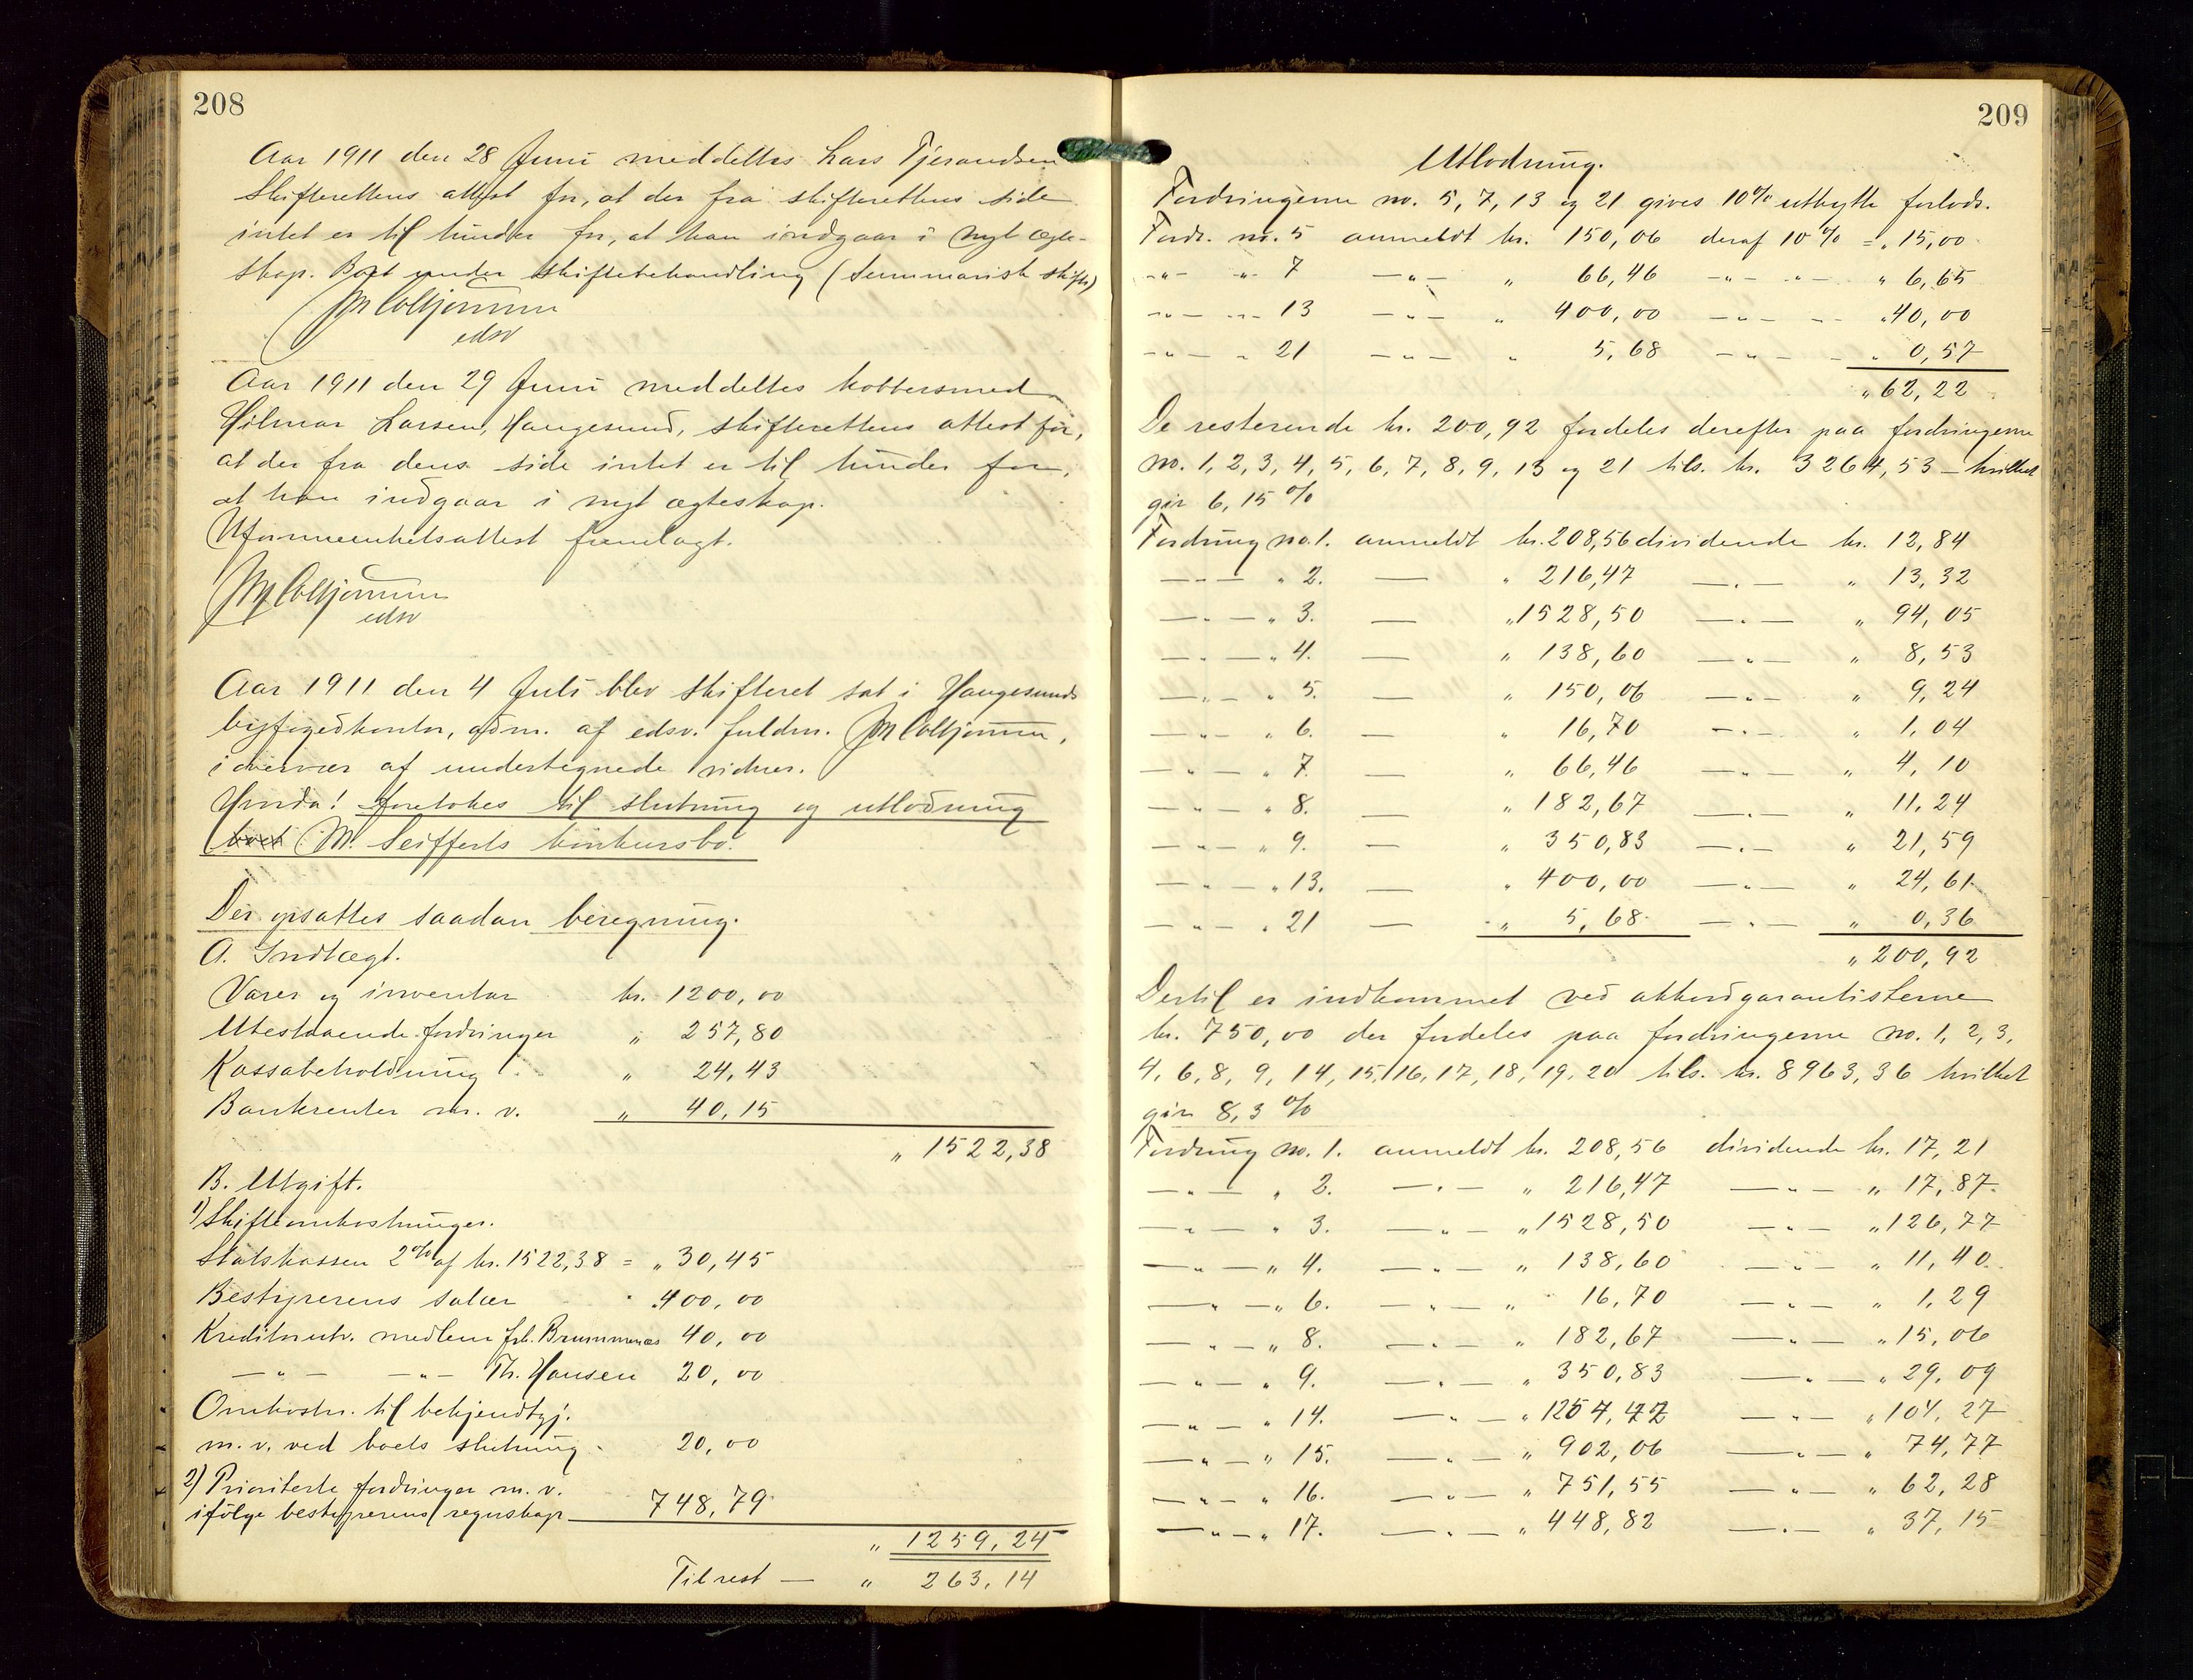 208
Aar 1911 den 28 Juni meddeltes Lars Tjerandsen
skifterettens attest for, at der fra skifterettens side
intet er til hinder for, at han indgaar i nyt ægte-
skap. Boet under skiftebehandling (summarisk skifte)
edsv
Aar 1911 den 29 Juni meddeltes kobbersmed
Hilmar Larsen, Haugesund, skifterettens attest for,
at der fra dens side intet er til hinder for,
at han indgaar i nyt ægteskap.
Uformuenhetsattest fremlagt.
edsv
Aar 1911 den 4 Juli blev skifteret sat i Haugesunds
byfogedkontor, adm. af edsv. fuldm.
i overvær af undertegnede vidner.
Hvorda! foretokes til slutning og utlodning
boet M. Seifferts konkursbo.
Der opsattes saadan beregning.
A. Indtægt.
Varer og inventar kr. 1200,00
Utestaaende fordringer " 257,80
Kassabeholdning " 24,43
Bankrenter m. v. " 40,15
" 1522,38
B. Utgift.
1) Skifteomkostninger.
Statskassen 2% af kr. 1522,38 = " 30,45
Bestyrerens salær " 400,00
Kreditorutv. medlem frk. Brummenæs 40,00
— " — — " — Th. Hansen 20,00
Omkostn. til bekjendtgj.
m. v. ved boets slutning - 20,00
2) Prioriterte fordringer m. v.
ifølge bestyrerens regnskap 748,79
" 1259,24
Til rest — " 263,14
209
Utlodning.
Fordringerne no. 5, 7, 13 og 21 gives 10% utbytte forlods.
Fordr. no. 5 anmeldt kr. 150,06 deraf 10% = " 15,00
-"- -"- 7 — " — " 66,46 -"- -"- " 6,65
-"- -"- 13 — " — " 400,00 — " — -"- " 40,00
-"- " 21 — " — " 5,68 — " — - " 0,57
" 62,22
De resterende kr. 200,92 fordeles derefter paa fordringerne
no. 1, 2, 3, 4, 5, 6, 7, 8, 9, 13 og 21 tils. kr. 3264,53 — hvilket
gir 6,15%
Fordring no. 1. anmeldt kr. 208,56 dividende kr. 12,84
— " — " 2. — " 216,47 — " — " 13,32
— " — " 3. — " 1528,50 — " — " 94,05
— " — " 4. — " 138,60 — " — " 8,53
— " — " 5. — " 150,06 — " — " 9,24
— " — " 6. — " 16,70 — " — " 1,04
— " — " 7. — " 66,46 — " — " 4,10
— " — " 8. — " 182,67 — " — " 11,24
— " — " 9. — " 350,83 — " — " 21,59
— " — " 13. — " 400,00 — " — " 24,61
— " — " 21 — " 5,68 — " — " 0,36
" 200,92
Dertil er indkommet ved akkordgarantisterne
kr. 750,00 der fordeles paa fordringerne no. 1, 2, 3,
4, 6, 8, 9, 14, 15, 16, 17, 18, 19, 20 tils. kr. 8963,36 hvilket
gir 8,3%
Fordring no. 1. anmeldt kr. 208,56 dividende kr. 17,21
— " — " 2. — " — " 216,47 — " — " 17,87
— " — " 3. — " — " 1528,50 — " — " 126,77
— " — " 4. — " — " 138,60 — " — " 11,40
— " — " 6. — " — " 16,70 — " — " 1,29
— " — " 8. — " — " 182,67 — " — " 15,06
— " — " 9. — " — " 350,83 — " — " 29,09
— " — " 14. — " — " — " — " 104,27
— " — " 15. — " — " 902,06 — " — " 74,77
— " — " 16. — " — " 751,55 — " — " 62,28
— " — " 17. — " — " 448,82 — " — " 37,15